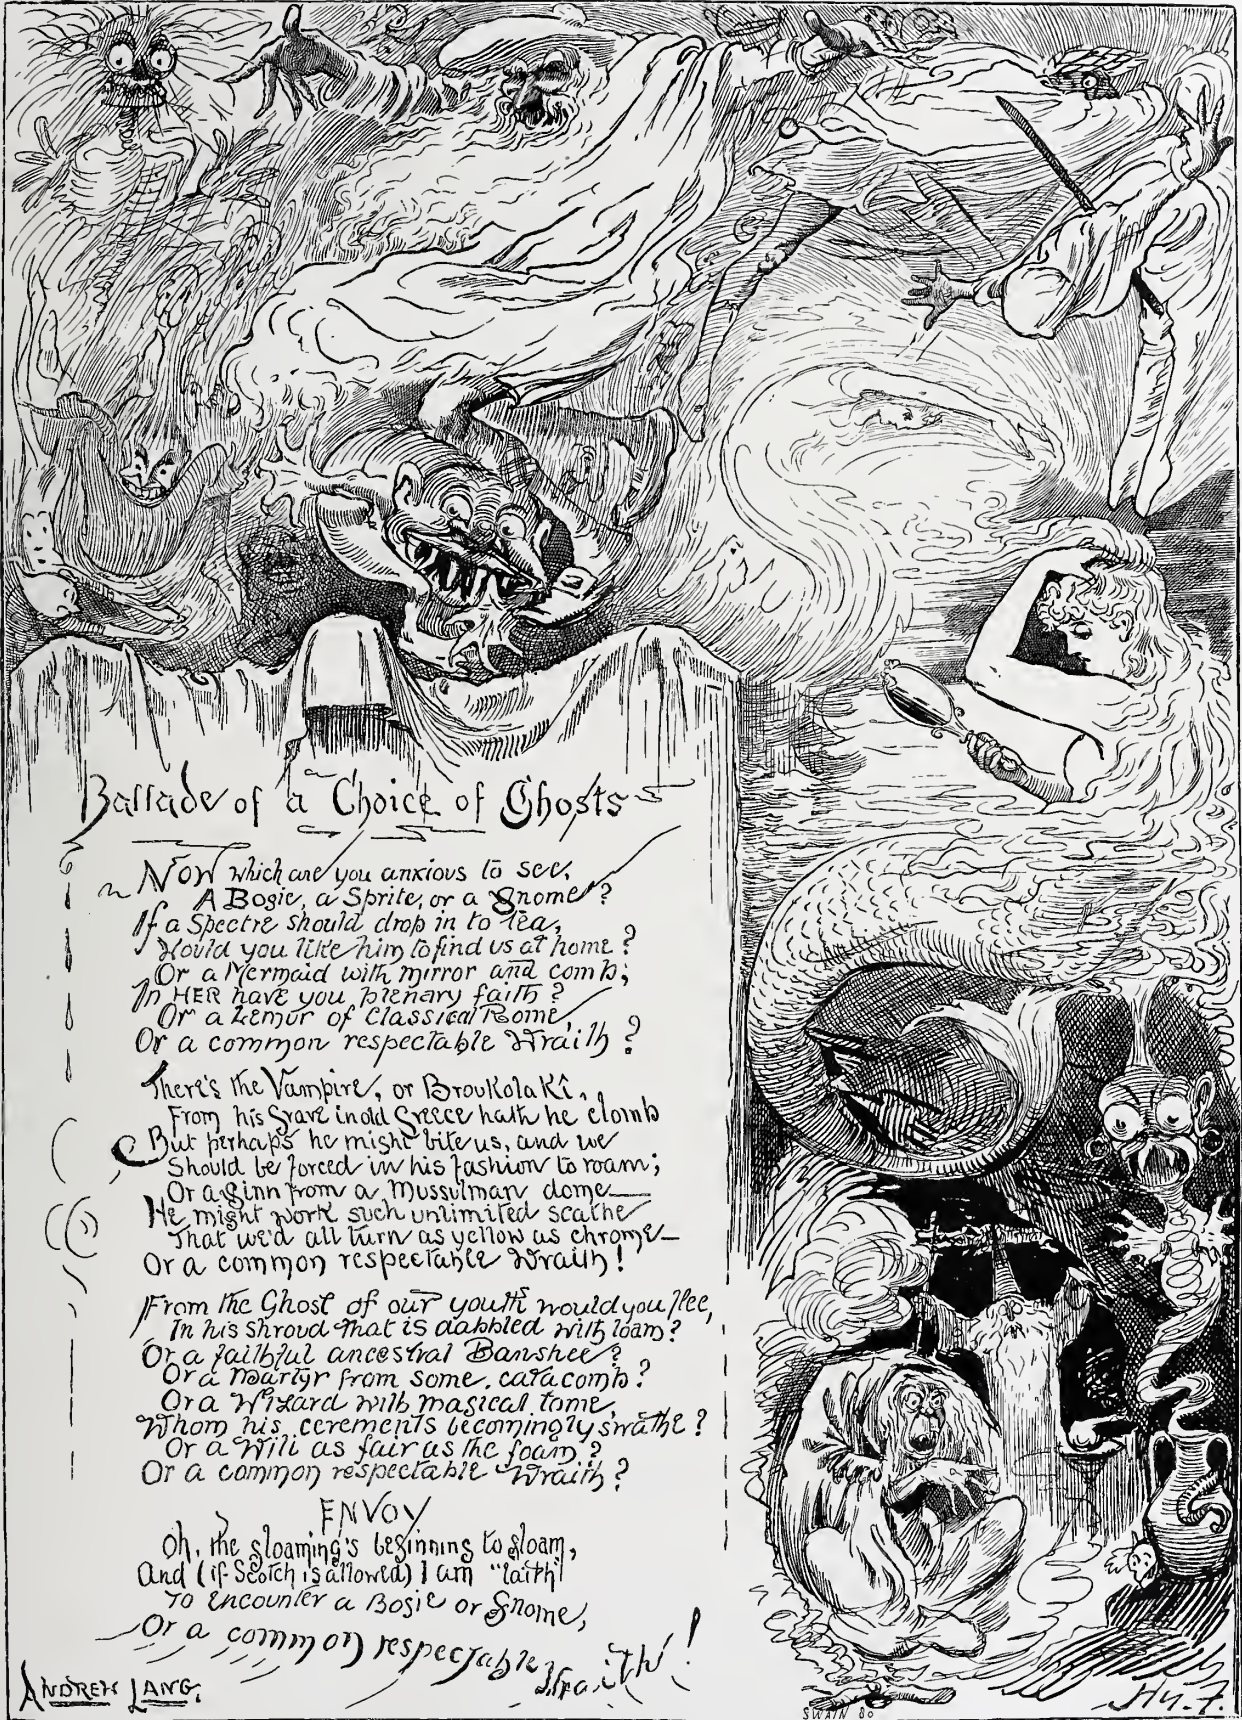 Ballade of a Choice of Ghosts
Now which are you anxious to see,
A Bogie, a Sprite, or a Gnome?
If a Spectre should drop in to tea,
Would you like him to find us at home?
Or a Mermaid with mirror and comb;
In HER have you plenary faith?
Or a Lemur of Classical Rome,
Or a common respectable Wraith?
There's the Vampire, or Broukolaki,
From his Grave in old Greece hath he clomb
But perhaps he might bite us, and we
Should be forced in his fashion to roam;
Or a Ginn from a Mussulman dome—
He might work such unlimited scathe
That we'd all turn as yellow as chrome—
Or a common respectable Wraith!
From the Ghost of our youth would you flee,
In his shroud that is dabbled with loam?
Or a faithful ancestral Banshee?
Or a Martyr from some, catacomb?
Or a Wizard with magical tome,
Whom his cerements becomingly swathe?
Or a Wili as fair as the foam?
Or a common respectable Wraith?
ENVOY
Oh, the gloaming's beginning to gloam,
And (if Scotch is allowed) I am "laith"
To encounter a Bogie or Gnome,
Or a common respectable Wraith!
ANDREW LANG.
SWAIN
Hy. F.